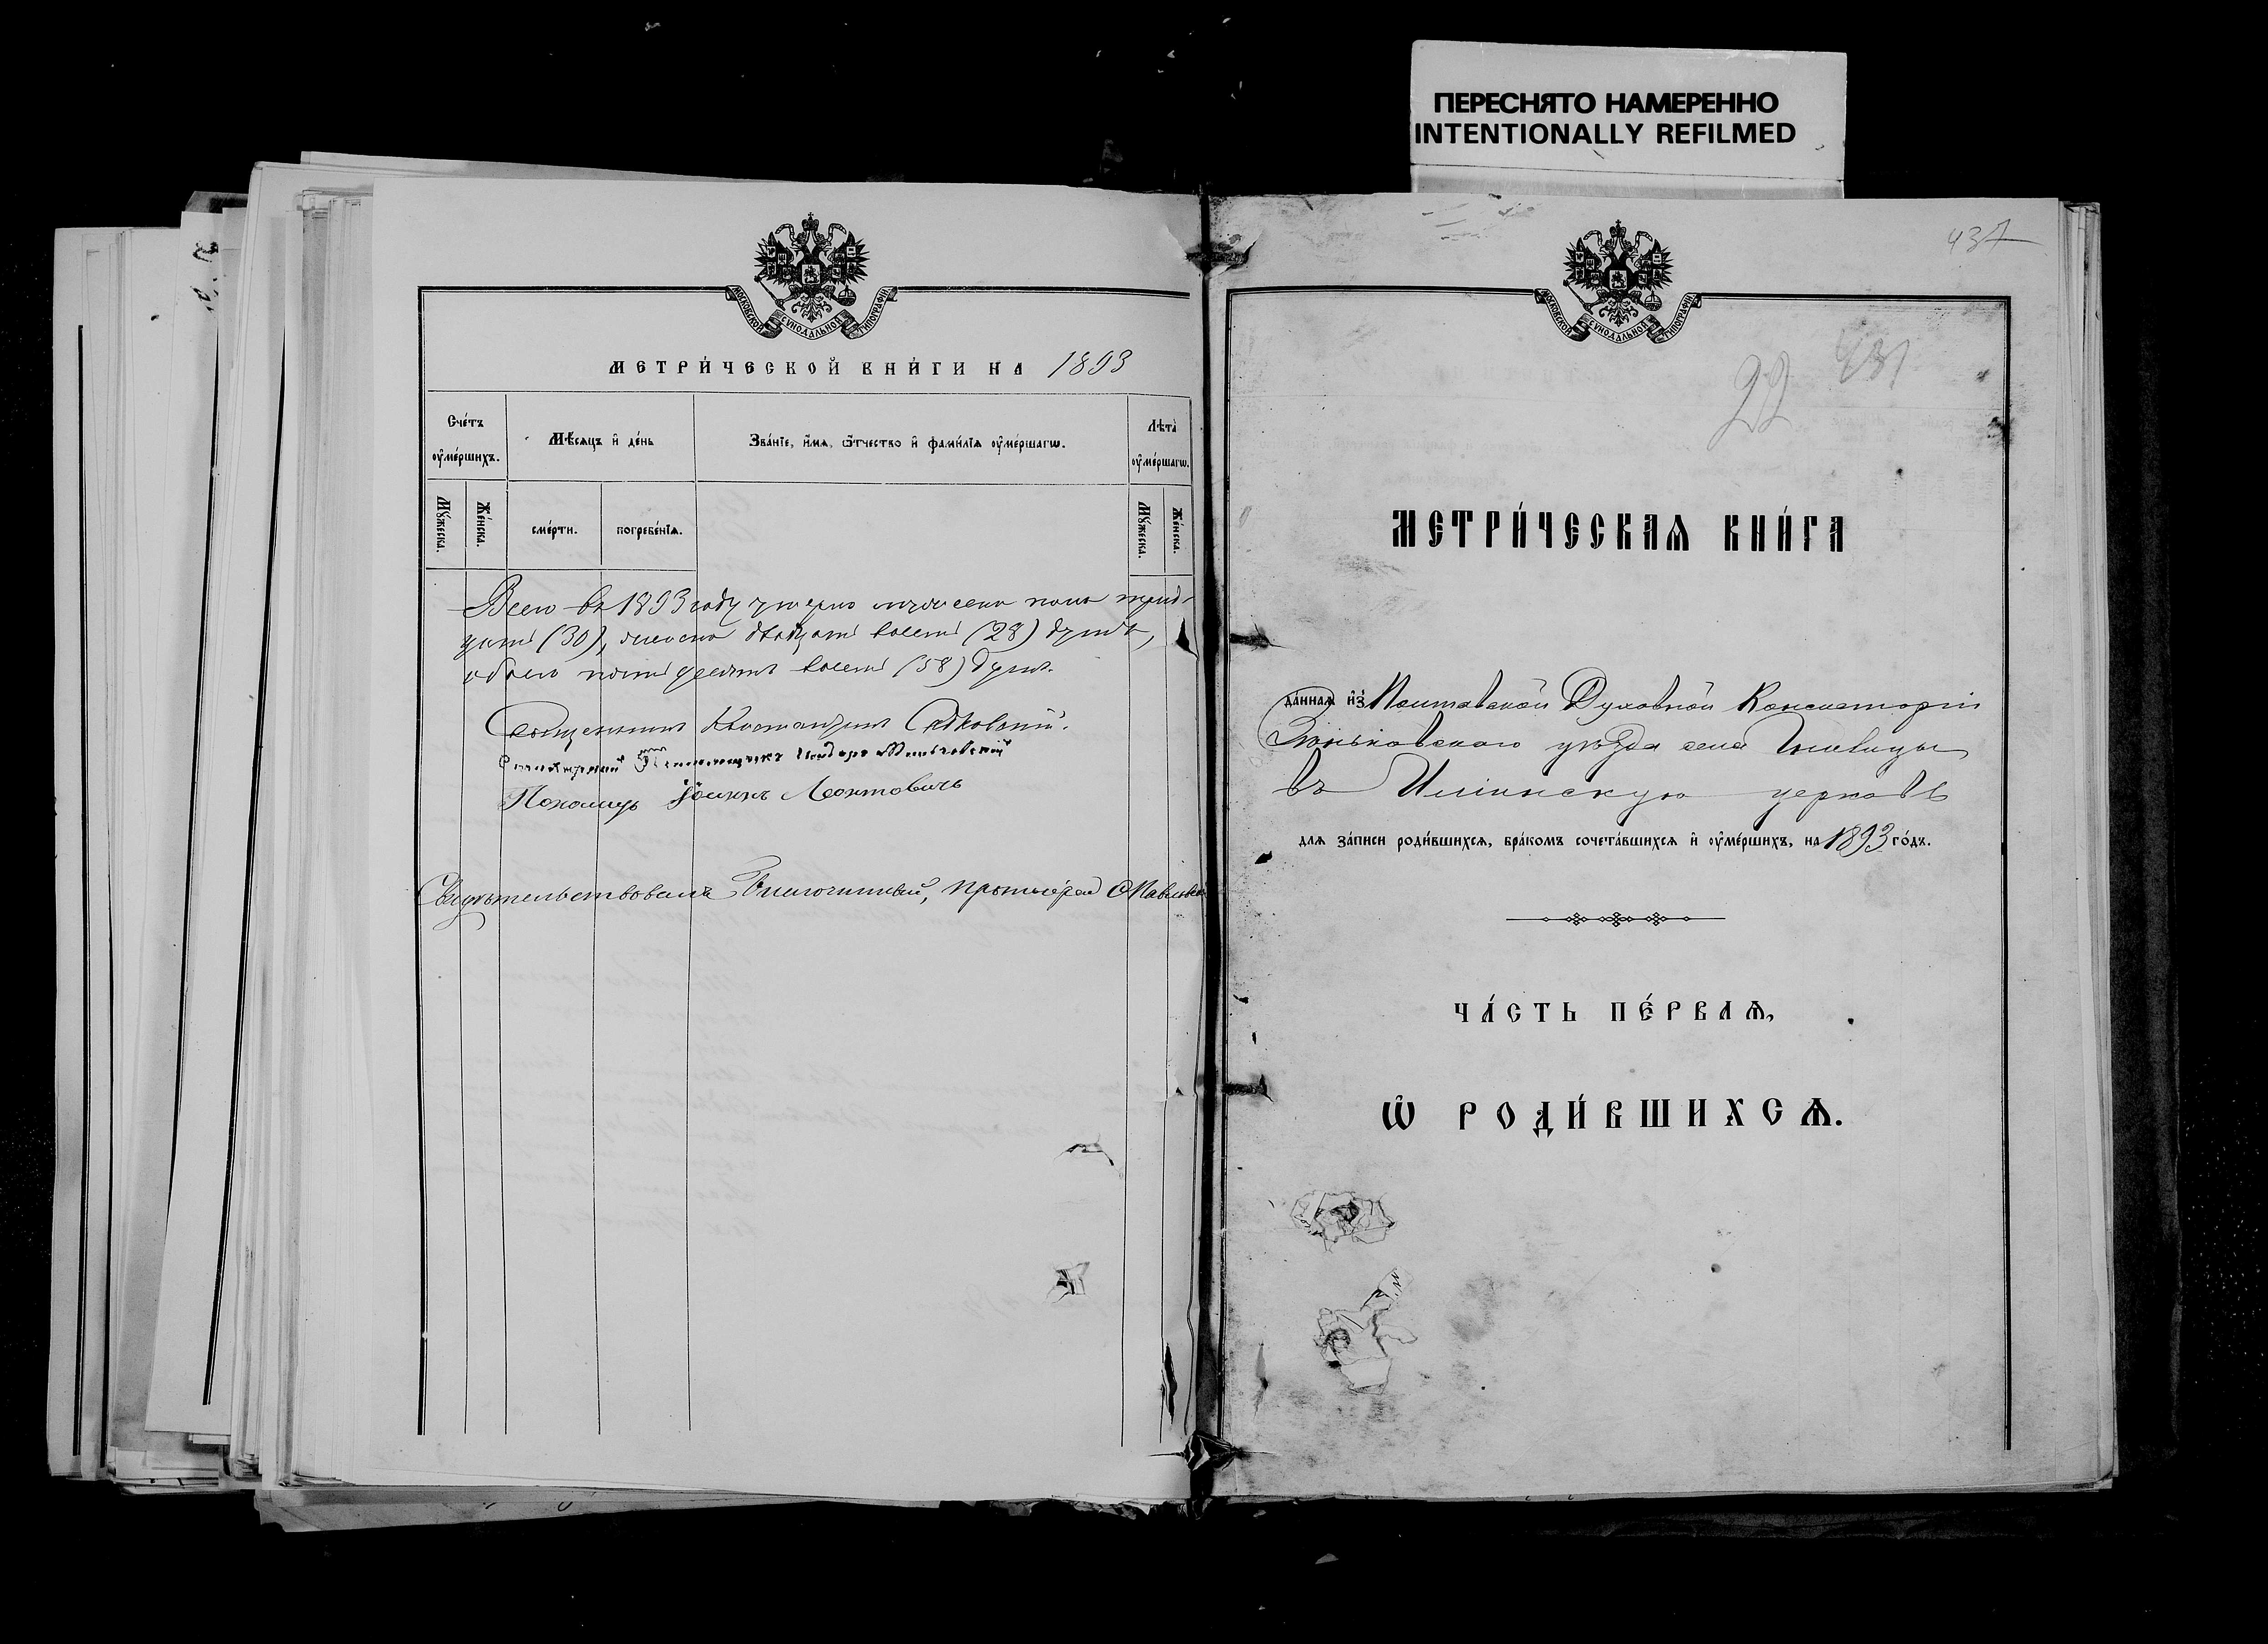 ПЕРЕСНЯТО НАМЕРЕННО
INTENTIONALLY REFILMED
МОСКОВСКОЙ СѴНОДАЛЬНОЙ ТИПОГРАФІИ
МЕТРИ́ЧЕСКОЙ КНИ́ГИ НА 1893
Сче́тъ ᲂу҆ме́ршихъ.
Мѣ́сяцъ и҆ де́нь
Зва́нїе, и҆́мѧ, ѻ҆́тчество и҆ фами́лїѧ ᲂу҆ме́ршагѡ.
Лѣта̀ ᲂу҆ме́ршагѡ.
Мꙋ́жеска.
Же́нска.
сме́рти.
погребе́нїѧ.
Мꙋ́жеска.
Же́нска.
Всего въ 1893 году умерло мужеска пола трид-
цать (30), женска двадцать восемь (28) душъ,
обоего пятьдесятъ восемь (58) душъ.
Священникъ Константинъ Садковскій.
Псаломщикъ
Пономарь Іоаннъ Леонтовичъ
Свидѣтельствовалъ Благочинный, протоіерей
437
МОСКОВСКОЙ СѴНОДАЛЬНОЙ ТИПОГРАФІИ
22 431
МЕТРИ́ЧЕСКАѦ КНИ́ГА
да́ннаѧ и҆з̾ Полтавской Духовной Консисторіи
Зѣньковскаго уѣзда села
въ Иліинскую церковь
длѧ за́писи роди́вшихсѧ, бра́комъ сочета́вшихсѧ и҆ ᲂу҆ме́ршихъ, на 1893 го́дъ.
ЧА́СТЬ ПЕ́РВАѦ,
Ѽ РОДИ́ВШИХСѦ.